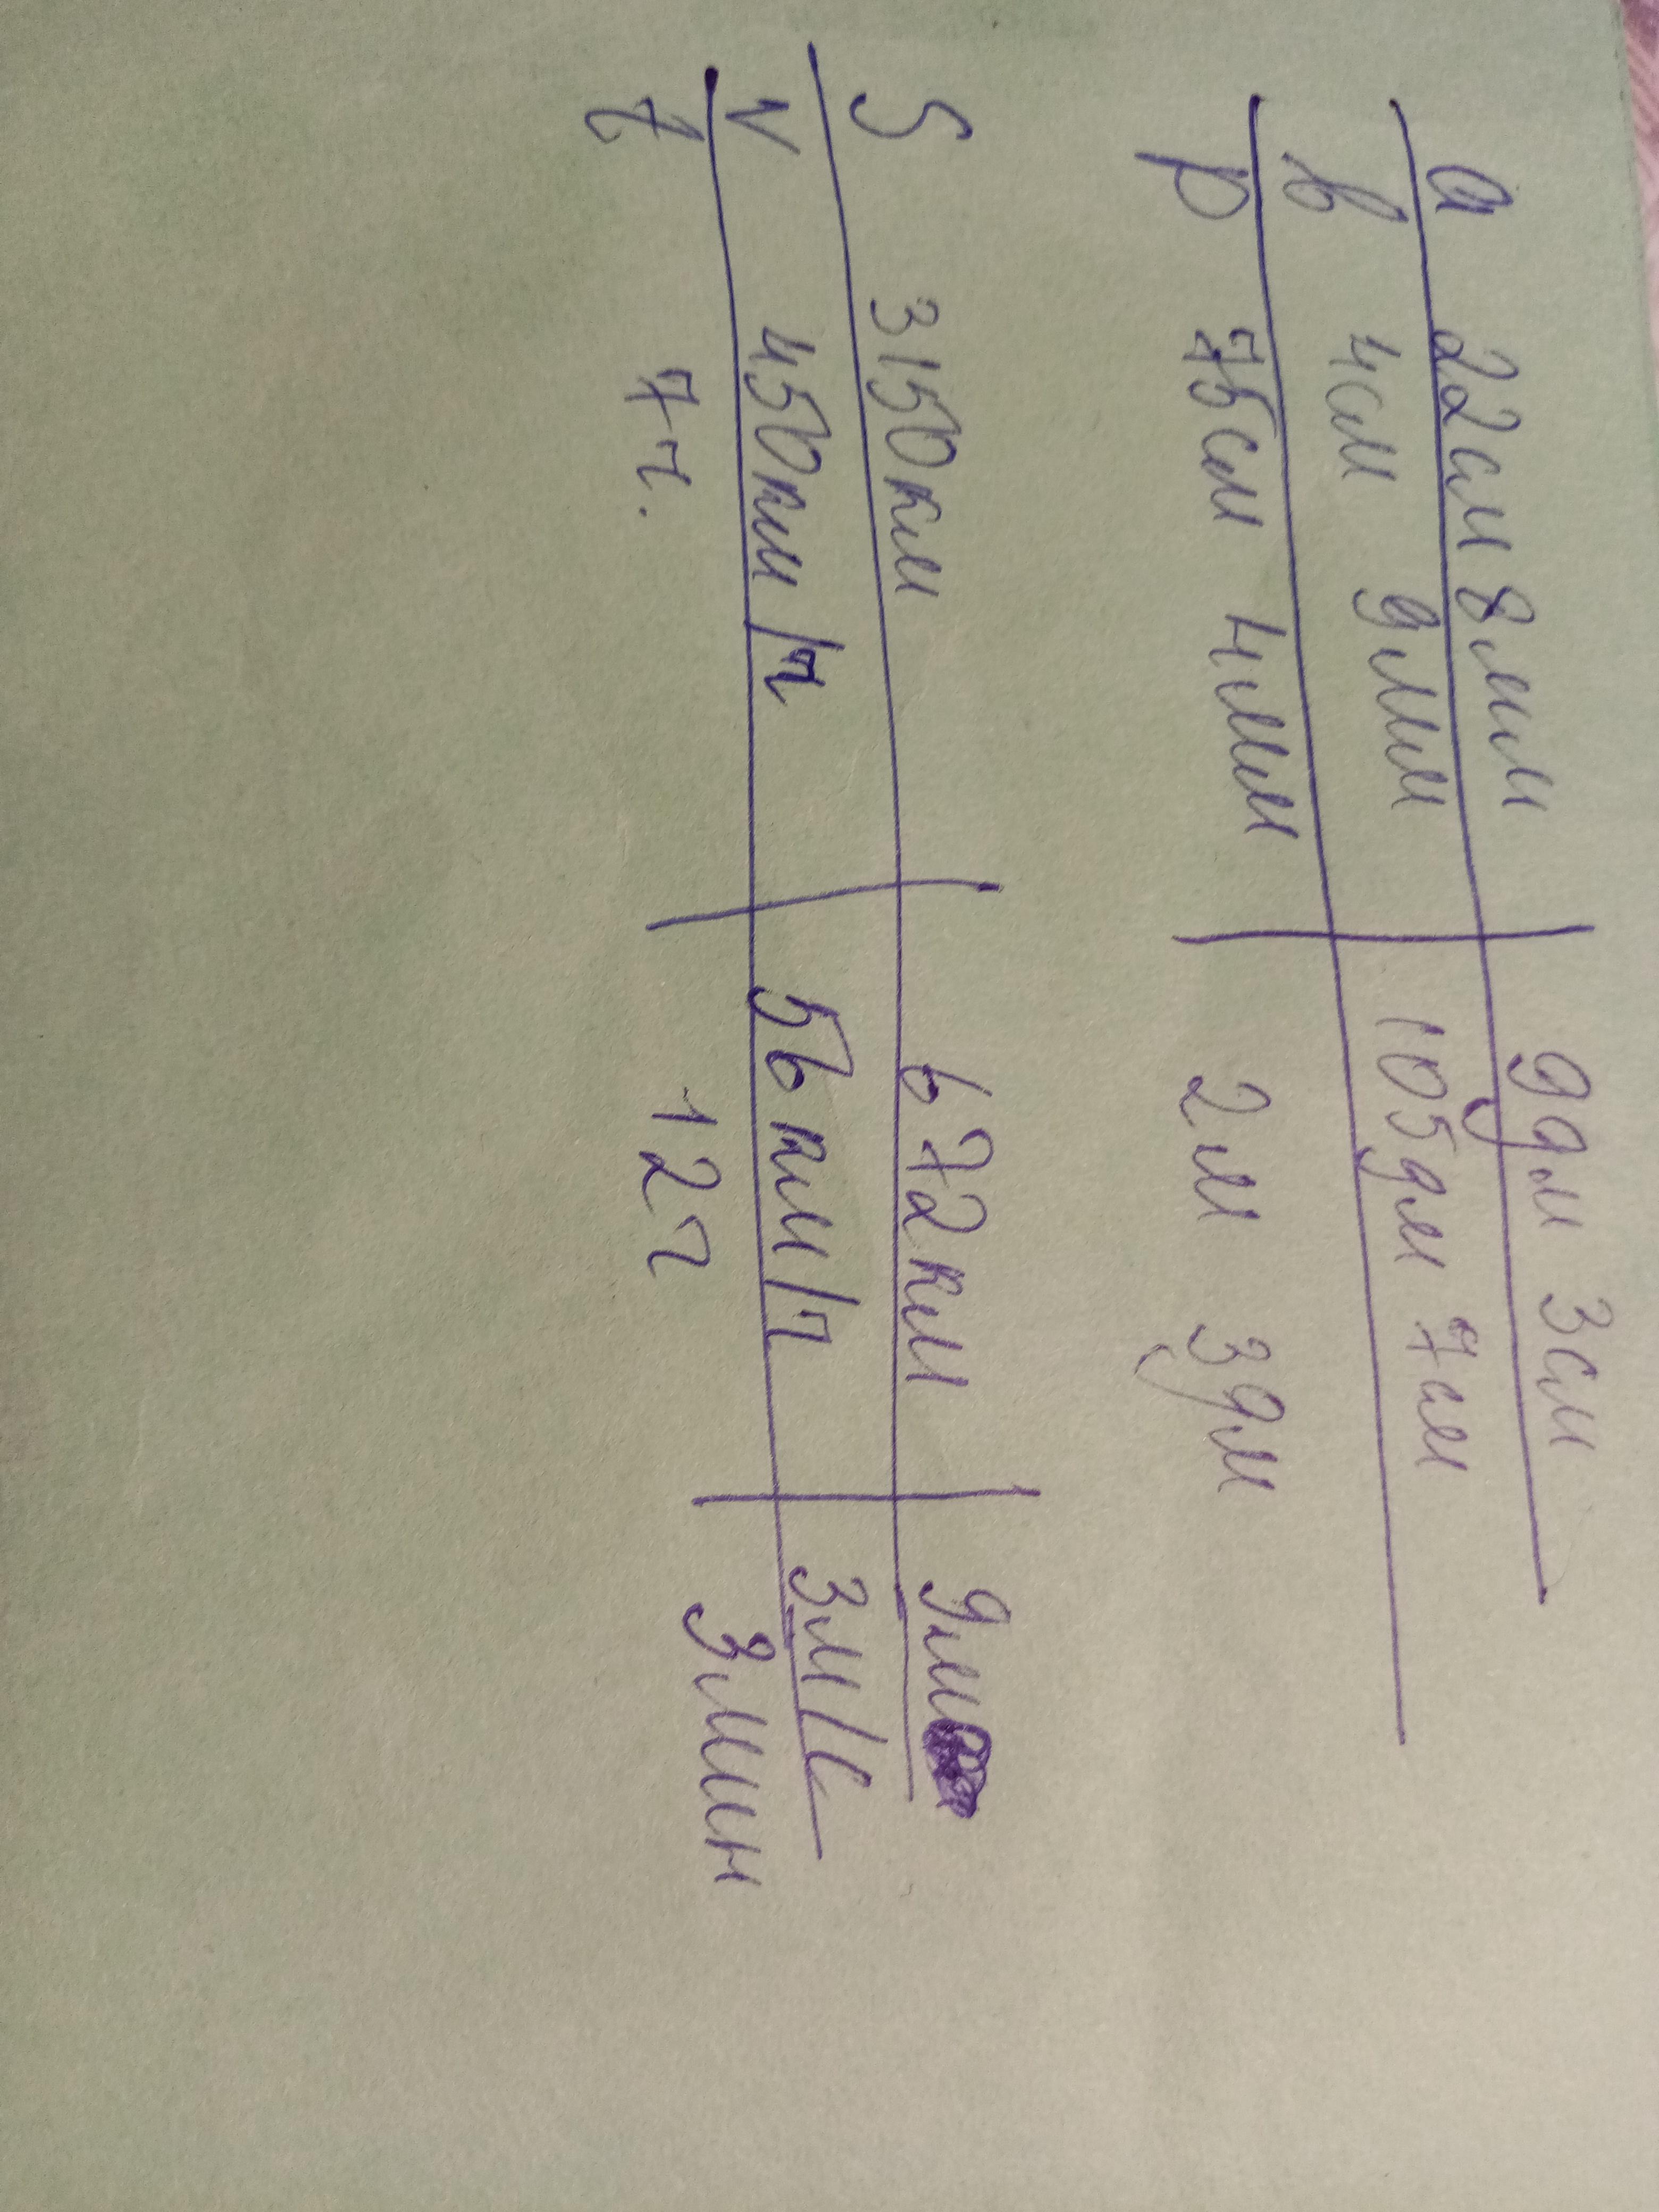 a 22см 8мм 9дм 3см
в 4см 9мм 105дм 7см
р 75см 4мм 2м 3дм
S 3150км 672км 9м
v 450км/ч 56км/ч 3м/с
t 7ч. 12ч 3мин